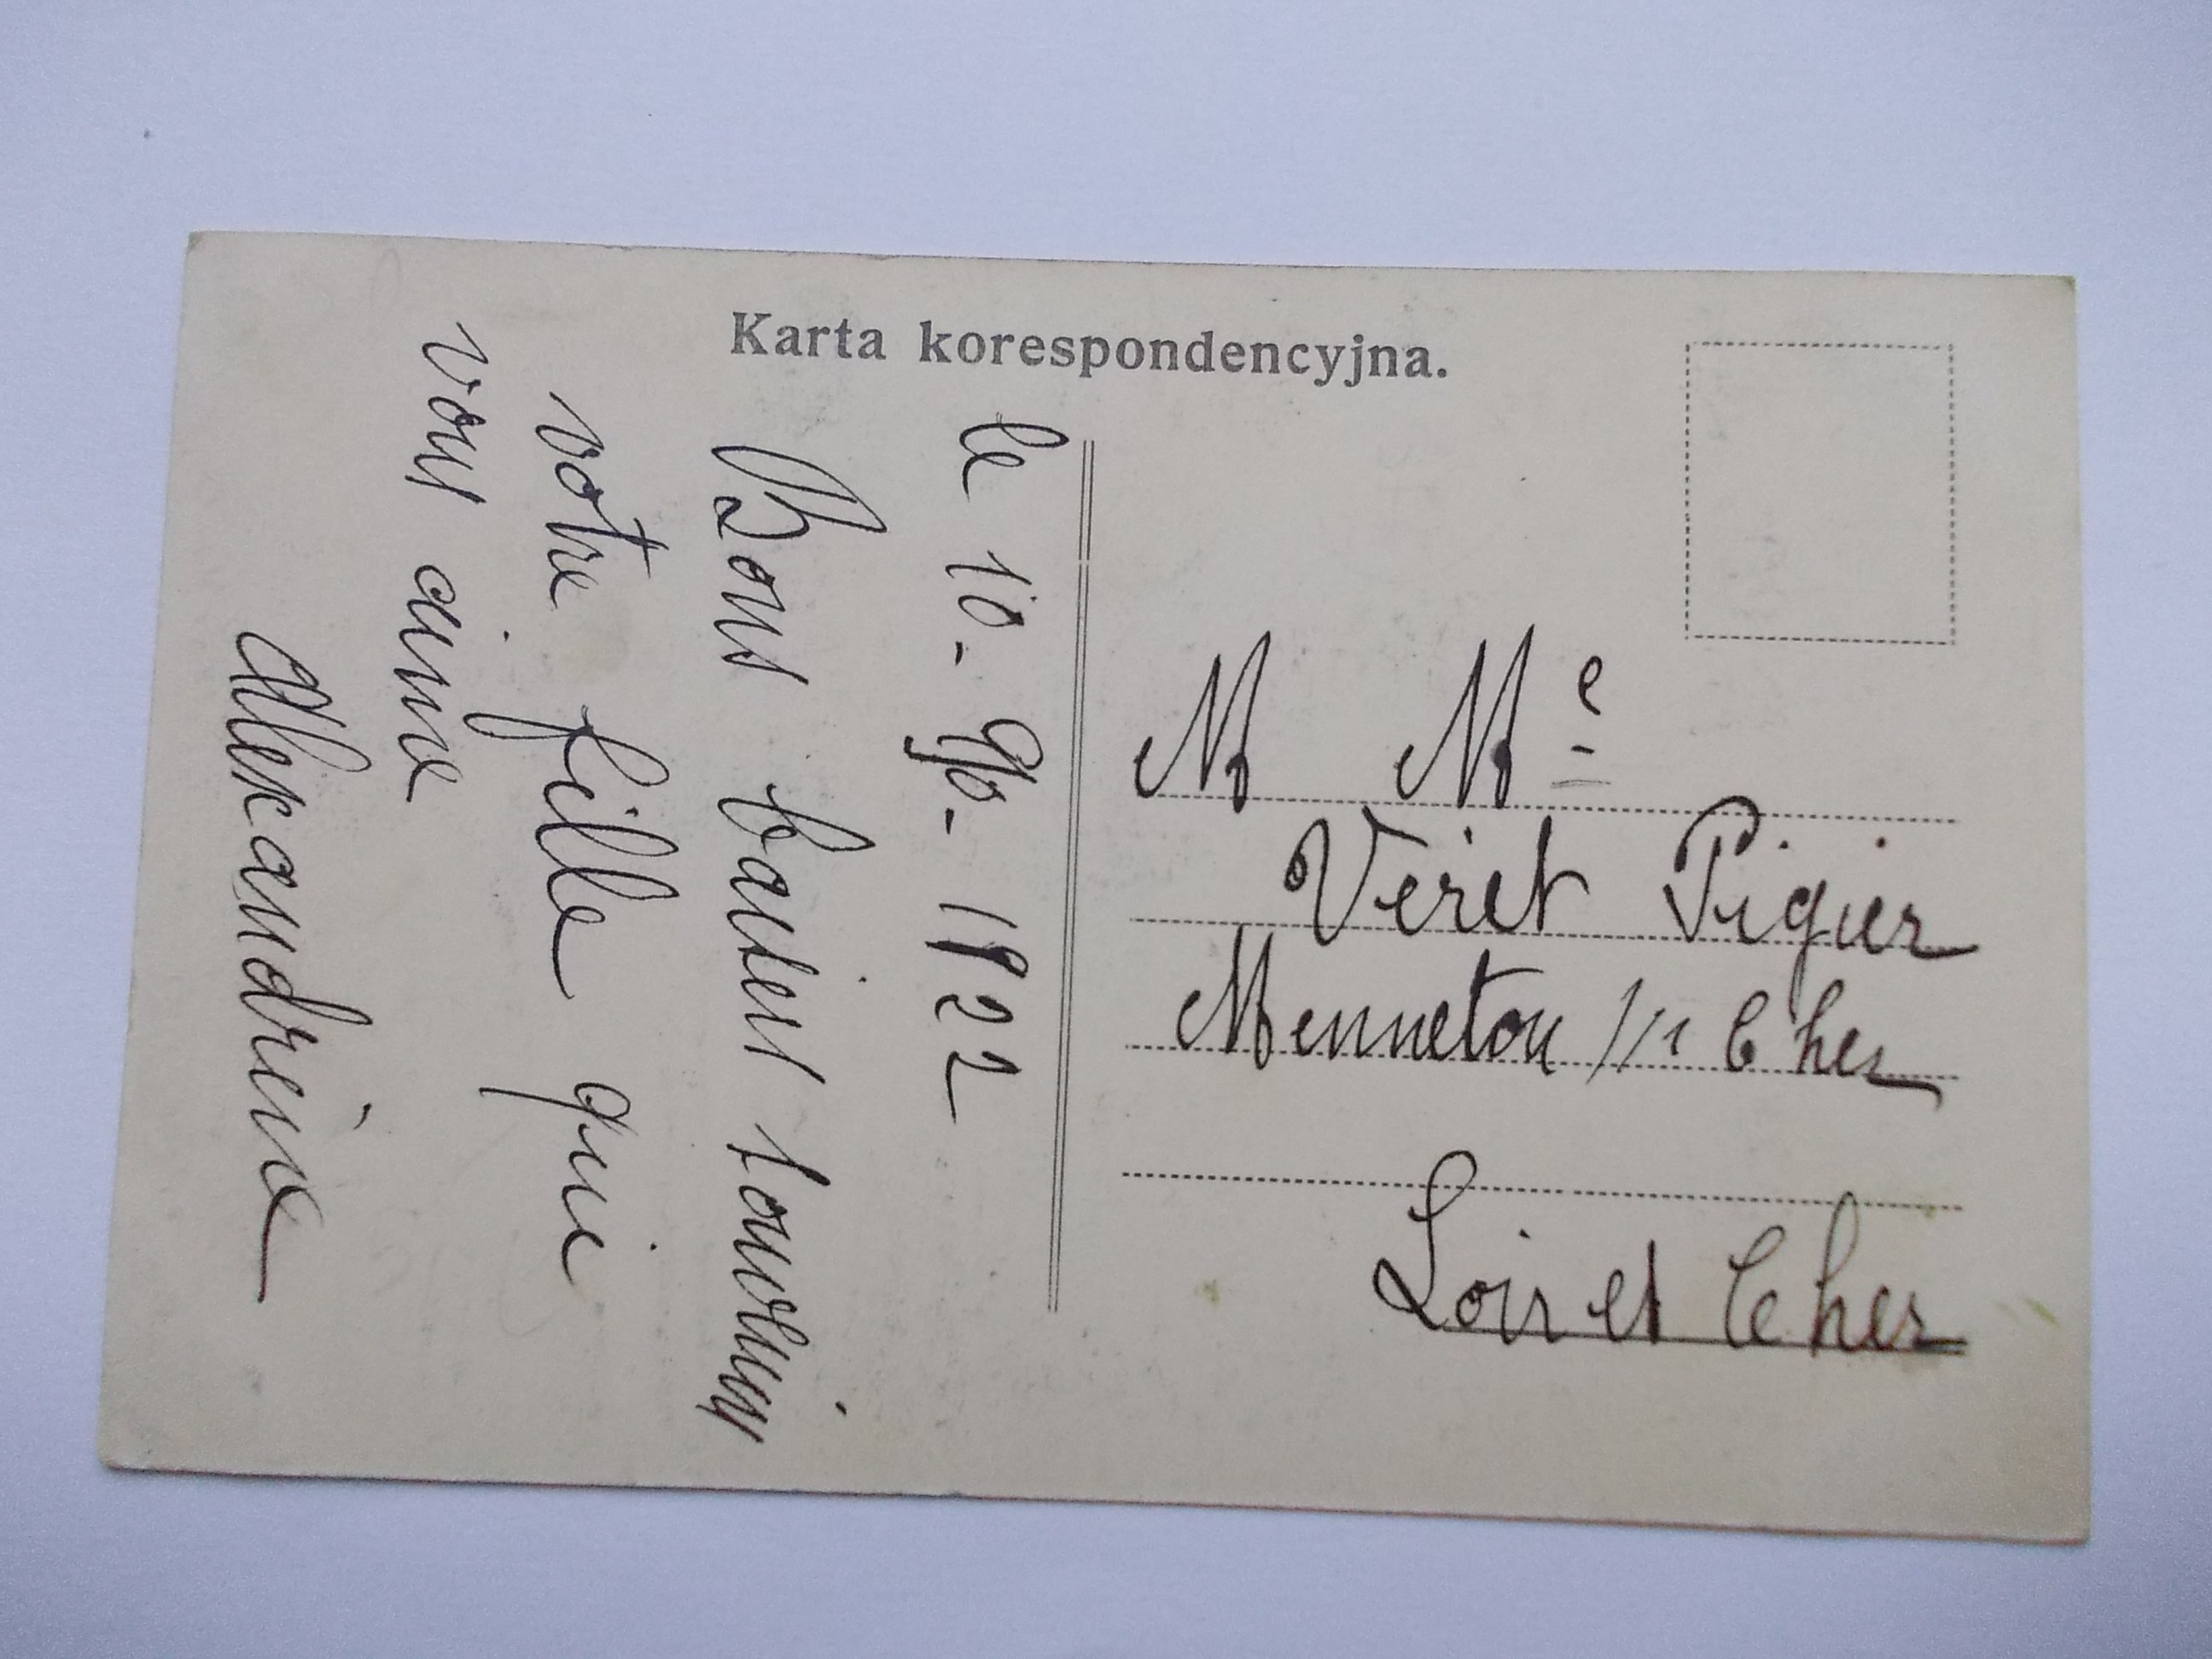 Karta korespondencyjna.
le 10-9bre-1922
Bons baisers souvenir
votre fille qui
vous aime
Alexandrine
M Me
Véret Pigier
Menneton s/r Cher
Loir et Cher